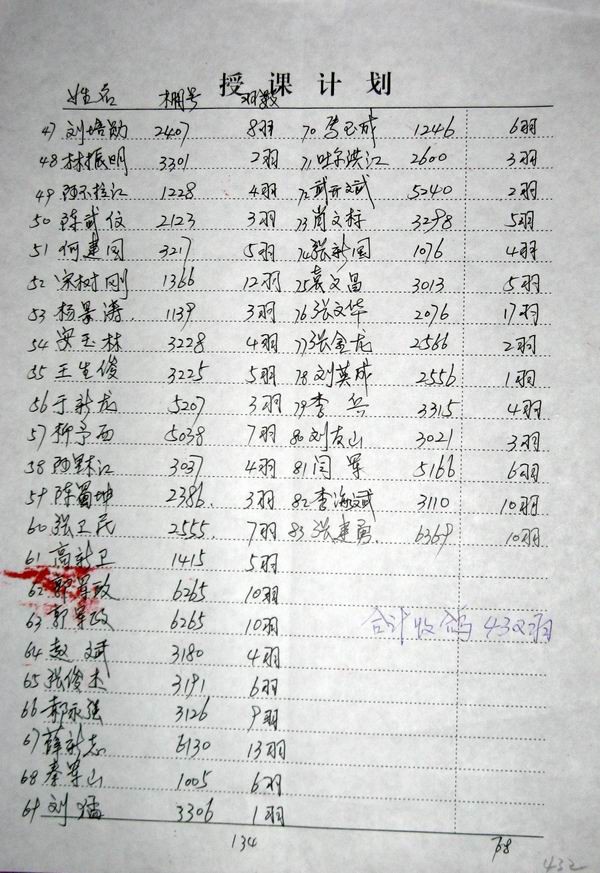 授课计划
姓名 棚号 羽数
47 刘培勋 2407 8羽 70 1246 6羽
48 林振明 3301 2羽 71 吐尔洪江 2600 3羽
49 1228 4羽 72 5240 2羽
50 陈武位 2123 3羽 73 肖文标 3298 5羽
51 何建国 3217 5羽 74 张新国 1076 4羽
52 宋树刚 1366 12羽 75 袁文昌 3013 5羽
53 杨景涛 1139 3羽 76 张文华 2076 17羽
54 安玉林 3228 4羽 77 张金龙 2566 2羽
55 王生俊 3225 5羽 78 刘英成 2556 1羽
56 于新龙 5207 3羽 79 李兵 3315 4羽
57 柳予西 5038 7羽 80 刘友山 3021 3羽
58 3037 4羽 81 闫军 5166 6羽
59 陈蜀坤 2386 3羽 82 李海斌 3110 10羽
60 张卫民 2555 7羽 83 张建勇 6369 10羽
61 高新卫 1415 5羽
62 郭军政 6265 10羽
63 郭军政 6265 10羽
合计收鸽432羽
64 赵斌 3180 4羽
65 张俊杰 3191 6羽
66 郝永强 3126 9羽
67 薛新志 6130 13羽
68 秦军山 1005 6羽
69 刘猛 3306 1羽
134 78
432